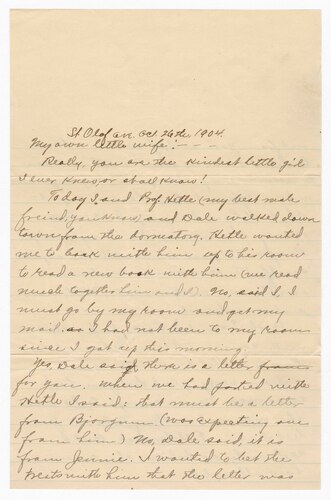 St. Olaf Ave. Oct. 26th, 1904.
My own little wife! - - -
Really, you are the kindest little girl
I ever knew, or shall know!
Today I, and Prof. Hetle (my best male
freind, you know) and Dale walked down
town from the dormatory. Hetle wanted
me to back with him up to his room
to read a new book with him (we read
much together him and I). No, said I, I
must go by my room and get my
mail, as I had not been to my room
since I got up this morning.
Yes, Dale said, there is a letter from
for you. When we had parted with
Hetle I said: that must be a letter
from Bjorgum. (Was expecting one
from him) No, Dale said, it is
from Jennie. I wanted to bet the
treats with him that the letter was